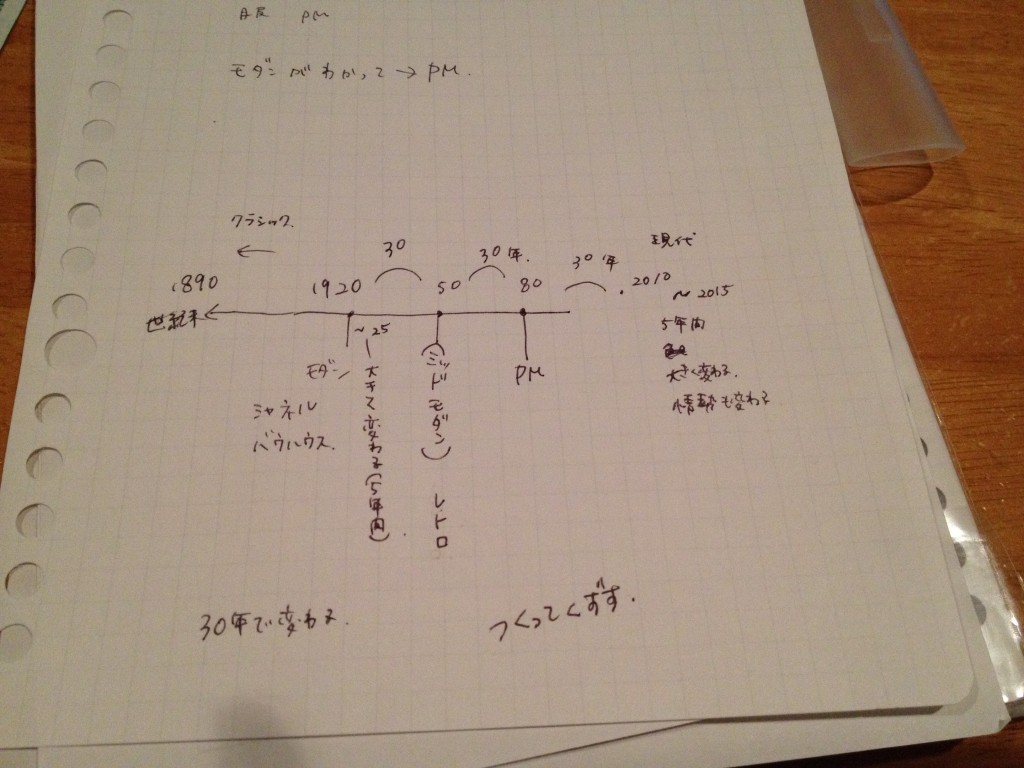 PM
モダンがわかって→PM.
クラシック.
←
現代
30
30年.
30年
1890
1920
50
80
.2010
~2015
世紀末
~25
5年内
モダン
大きく変わる(5年内).
(ミッドモダン) レトロ
PM
大きく変わる.
情勢も変わる
シャネル
バウハウス.
30年で変わる.
つくってくずす.